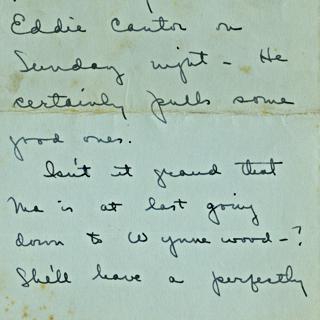 Eddie Cantor on
Sunday night - He
certainly pulls some
good ones.
Isn't it grand that
Ma is at last going
down to Wynnewood-?
She'll have a perfectly